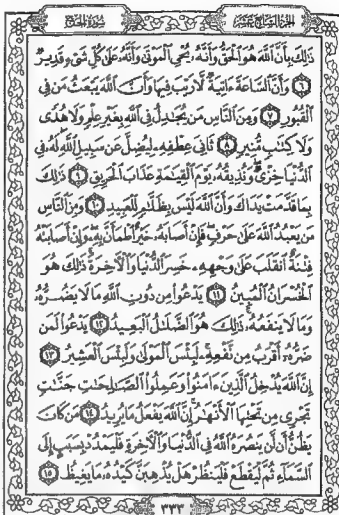 الجزء السابع عشر سورة الحج
ذَٰلِكَ بِأَنَّ ٱللَّهَ هُوَ ٱلْحَقُّ وَأَنَّهُۥ يُحْىِ ٱلْمَوْتَىٰ وَأَنَّهُۥ عَلَىٰ كُلِّ شَىْءٍ قَدِيرٌ
٦ وَأَنَّ ٱلسَّاعَةَ ءَاتِيَةٌ لَّا رَيْبَ فِيهَا وَأَنَّ ٱللَّهَ يَبْعَثُ مَن فِى
ٱلْقُبُورِ ٧ وَمِنَ ٱلنَّاسِ مَن يُجَٰدِلُ فِى ٱللَّهِ بِغَيْرِ عِلْمٍ وَلَا هُدًى
وَلَا كِتَٰبٍ مُّنِيرٍ ٨ ثَانِىَ عِطْفِهِۦ لِيُضِلَّ عَن سَبِيلِ ٱللَّهِ لَهُۥ فِى
ٱلدُّنْيَا خِزْىٌ وَنُذِيقُهُۥ يَوْمَ ٱلْقِيَٰمَةِ عَذَابَ ٱلْحَرِيقِ ٩ ذَٰلِكَ
بِمَا قَدَّمَتْ يَدَاكَ وَأَنَّ ٱللَّهَ لَيْسَ بِظَلَّٰمٍ لِّلْعَبِيدِ ١٠ وَمِنَ ٱلنَّاسِ
مَن يَعْبُدُ ٱللَّهَ عَلَىٰ حَرْفٍ فَإِنْ أَصَابَهُۥ خَيْرٌ ٱطْمَأَنَّ بِهِۦ وَإِنْ أَصَابَتْهُ
فِتْنَةٌ ٱنقَلَبَ عَلَىٰ وَجْهِهِۦ خَسِرَ ٱلدُّنْيَا وَٱلْءَاخِرَةَ ذَٰلِكَ هُوَ
ٱلْخُسْرَانُ ٱلْمُبِينُ ١١ يَدْعُوا۟ مِن دُونِ ٱللَّهِ مَا لَا يَضُرُّهُۥ
وَمَا لَا يَنفَعُهُۥ ذَٰلِكَ هُوَ ٱلضَّلَٰلُ ٱلْبَعِيدُ ١٢ يَدْعُوا۟ لَمَن
ضَرُّهُۥٓ أَقْرَبُ مِن نَّفْعِهِۦ لَبِئْسَ ٱلْمَوْلَىٰ وَلَبِئْسَ ٱلْعَشِيرُ ١٣
إِنَّ ٱللَّهَ يُدْخِلُ ٱلَّذِينَ ءَامَنُوا۟ وَعَمِلُوا۟ ٱلصَّٰلِحَٰتِ جَنَّٰتٍ
تَجْرِى مِن تَحْتِهَا ٱلْأَنْهَٰرُ إِنَّ ٱللَّهَ يَفْعَلُ مَا يُرِيدُ ١٤ مَن كَانَ
يَظُنُّ أَن لَّن يَنصُرَهُ ٱللَّهُ فِى ٱلدُّنْيَا وَٱلْءَاخِرَةِ فَلْيَمْدُدْ بِسَبَبٍ إِلَى
ٱلسَّمَآءِ ثُمَّ لْيَقْطَعْ فَلْيَنظُرْ هَلْ يُذْهِبَنَّ كَيْدُهُۥ مَا يَغِيظُ ١٥
٣٣٣